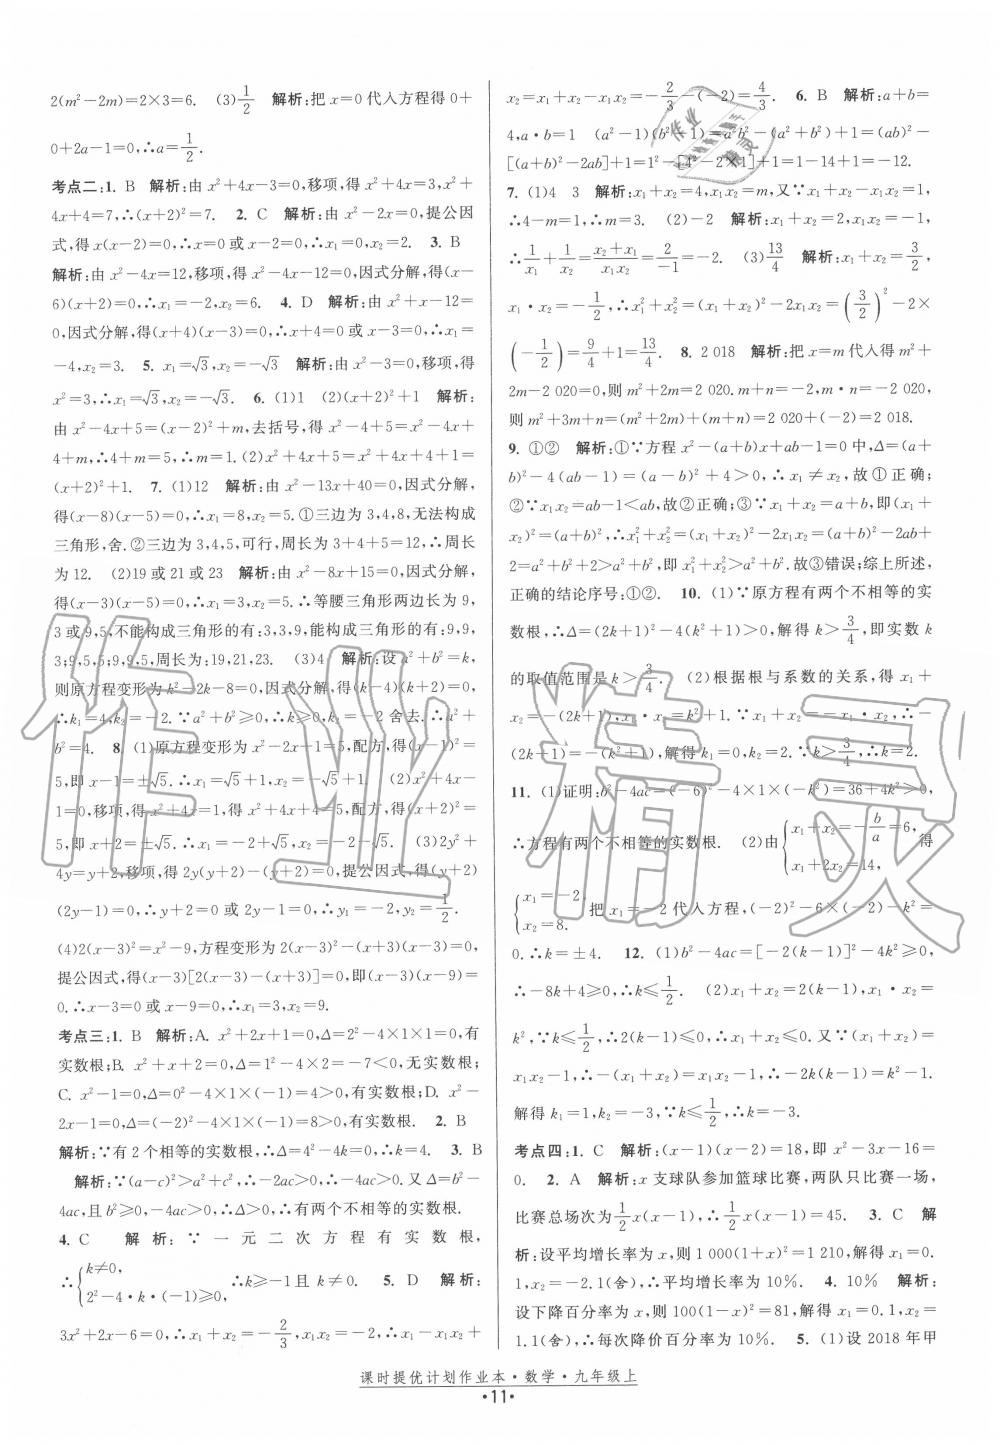 2(m²-2m)=2×3=6. (3)1/2 解析:把 x=0 代入方程得 0+
0+2a-1=0,∴a=1/2.
考点二:1. B 解析:由 x²+4x-3=0,移项,得 x²+4x=3,x²+
4x+4=7,∴(x+2)²=7. 2. C 解析:由 x²-2x=0,提公因
式,得 x(x-2)=0,∴x=0 或 x-2=0,∴x₁=0,x₂=2. 3. B
解析:由 x²-4x=12,移项,得 x²-4x-12=0,因式分解,得(x-
6)(x+2)=0,∴x₁=-2,x₂=6. 4. D 解析:由 x²+x-12=
0,因式分解,得(x+4)(x-3)=0,∴x+4=0 或 x-3=0,∴x₁=
-4,x₂=3. 5. x₁=√3,x₂=-√3 解析:由 x²-3=0,移项,得
x²=3,∴x₁=√3,x₂=-√3. 6. (1)1 (2)(x+2)²+1 解析:
由 x²-4x+5=(x-2)²+m,去括号,得 x²-4+5=x²-4x+
4+m,∴4+m=5,∴m=1. (2)x²+4x+5=x²+4x+4+1=
(x+2)²+1. 7. (1)12 解析:由 x²-13x+40=0,因式分解,
得(x-8)(x-5)=0,∴x₁=8,x₂=5.①三边为 3,4,8,无法构成
三角形,舍.②三边为 3,4,5,可行,周长为 3+4+5=12,∴周长
为 12. (2)19 或 21 或 23 解析:由 x²-8x+15=0,因式分解,
得(x-3)(x-5)=0,∴x₁=3,x₂=5.∴等腰三角形两边长为 9,
3 或 9,5,不能构成三角形的有:3,3,9,能构成三角形的有:9,9,
3;9,5,5;9,9,5,周长为:19,21,23. (3)4 解析:设 a²+b²=k,
则原方程变形为 k²-2k-8=0,因式分解,得(k-4)(k+2)=0,
∴k₁=4,k₂=-2.∵a²+b²≥0,∴k≥0,k₁=-2 舍去.∴a²+
b²=4. 8. (1)原方程变形为 x²-2x+1=5,配方,得(x-1)²=
5,即 x-1=±√5.∴x₁=√5+1,x₂=-√5+1. (2)x²+4x-
1=0,移项,得 x²+4x=1,得 x²+4x+4=5,配方,得(x+2)²=
5,即 x+2=±√5.∴x₁=-2+√5,x₂=-2-√5. (3)2y²+
4y=y+2,移项,得 2y(y+2)-(y+2)=0,提公因式,得(y+2)
(2y-1)=0,∴y+2=0 或 2y-1=0,∴y₁=-2,y₂=1/2.
(4)2(x-3)²=x²-9,方程变形为 2(x-3)²-(x+3)(x-3)=0,
提公因式,得(x-3)[2(x-3)-(x+3)]=0,即(x-3)(x-9)=
0.∴x-3=0 或 x-9=0,∴x₁=3,x₂=9.
考点三:1. B 解析:A. x²+2x+1=0,Δ=2²-4×1×1=0,有
实数根;B. x²+x+2=0,Δ=1²-4×1×2=-7<0,无实数根;
C. x²-1=0,Δ=0²-4×1×(-1)=4>0,有实数根;D. x²-
2x-1=0,Δ=(-2)²-4×1×(-1)=8>0,有实数根. 2. B
解析:∵有 2 个相等的实数根,∴Δ=4²-4k=0,∴k=4. 3. B
解析:∵(a-c)²>a²+c²,∴-2ac>0,∴-4ac>0.又∵Δ=b²-
4ac,且 b²≥0,-4ac>0,∴Δ>0,∴有两个不相等的实数根.
4. C 解析:∵一元二次方程有实数根,
∴{k≠0, 2²-4·k·(-1)≥0, ∴k≥-1且 k≠0. 5. D 解析:
3x²+2x-6=0,∴x₁+x₂=-2/3,x₁x₂=-2,∴x₁-x₁x₂+
x₂=x₁+x₂-x₁x₂=-2/3-(-2)=4/3. 6. B 解析:a+b=
4,a·b=1 (a²-1)(b²-1)=a²b²-(a²+b²)+1=(ab)²-
[(a+b)²-2ab]+1=1²-[4²-2×1]+1=1-14+1=-12.
7. (1)4 3 解析:x₁+x₂=4,x₁x₂=m,又∵x₁+x₂-x₁x₂=1,
∴4-m=1,∴m=3. (2)-2 解析:x₁+x₂=2,x₁x₂=-1,
∴1/x₁+1/x₂=(x₂+x₁)/(x₁x₂)=2/(-1)=-2. (3)13/4 解析:x₁+x₂=3/2,
x₁·x₂=-1/2,∴x₁²+x₂²=(x₁+x₂)²-2x₁x₂=(3/2)²-2×
(-1/2)=9/4+1=13/4. 8. 2 018 解析:把 x=m 代入得 m²+
2m-2 020=0,则 m²+2m=2 020. m+n=-2,m·n=-2 020,
则 m²+3m+n=(m²+2m)+(m+n)=2 020+(-2)=2 018.
9. ①② 解析:①∵方程 x²-(a+b)x+ab-1=0 中,Δ=(a+
b)²-4(ab-1)=(a-b)²+4>0,∴x₁≠x₂,故①正确;
②∵x₁x₂=ab-1<ab,故②正确;③∵x₁+x₂=a+b,即(x₁+
x₂)²=(a+b)²,∴x₁²+x₂²=(x₁+x₂)²-2x₁x₂=(a+b)²-2ab+
2=a²+b²+2>a²+b²,即 x₁²+x₂²>a²+b².故③错误;综上所述,
正确的结论序号:①②. 10. (1)∵原方程有两个不相等的实
数根,∴Δ=(2k+1)²-4(k²+1)>0,解得 k>3/4,即实数 k
的取值范围是 k>3/4. (2)根据根与系数的关系,得 x₁+
x₂=-(2k+1),x₁·x₂=k²+1,又∵x₁+x₂=-x₁·x₂,∴-
(2k+1)=-(k²+1),解得 k₁=0,k₂=2.∵k>3/4,∴k=2.
11. (1)证明:b²-4ac=(-6)²-4×1×(-k²)=36+4k²>0,
∴方程有两个不相等的实数根. (2)由{x₁+x₂=-b/a=6, x₁+2x₂=14, 得
{x₁=-2, x₂=8. 把 x₁=-2 代入方程,(-2)²-6×(-2)-k²=
0.∴k=±4. 12. (1)b²-4ac=[-2(k-1)]²-4k²≥0,
∴-8k+4≥0,∴k≤1/2. (2)x₁+x₂=2(k-1),x₁·x₂=
k²,∵k≤1/2,∴2(k-1)≤0,∴x₁+x₂≤0.又∵(x₁+x₂)=
x₁x₂-1,∴-(x₁+x₂)=x₁x₂-1,∴-2(k-1)=k²-1.
解得 k₁=1,k₂=-3.∵k≤1/2,∴k=-3.
考点四:1. C 解析:(x-1)(x-2)=18,即 x²-3x-16=
0. 2. A 解析:x 支球队参加篮球比赛,两队只比赛一场,
比赛总场次为1/2x(x-1),∴1/2x(x-1)=45. 3. C 解
析:设平均增长率为 x,则 1 000(1+x)²=1 210,解得 x₁=
0.1,x₂=-2.1(舍),∴平均增长率为 10%. 4. 10% 解析:
设下降百分率为 x,则 100(1-x)²=81,解得 x₁=0.1,x₂=
1.1(舍),∴每次降价百分率为 10%. 5. (1)设 2018 年甲
课时提优计划作业本·数学·九年级上
·11·
作业精灵
作业精灵